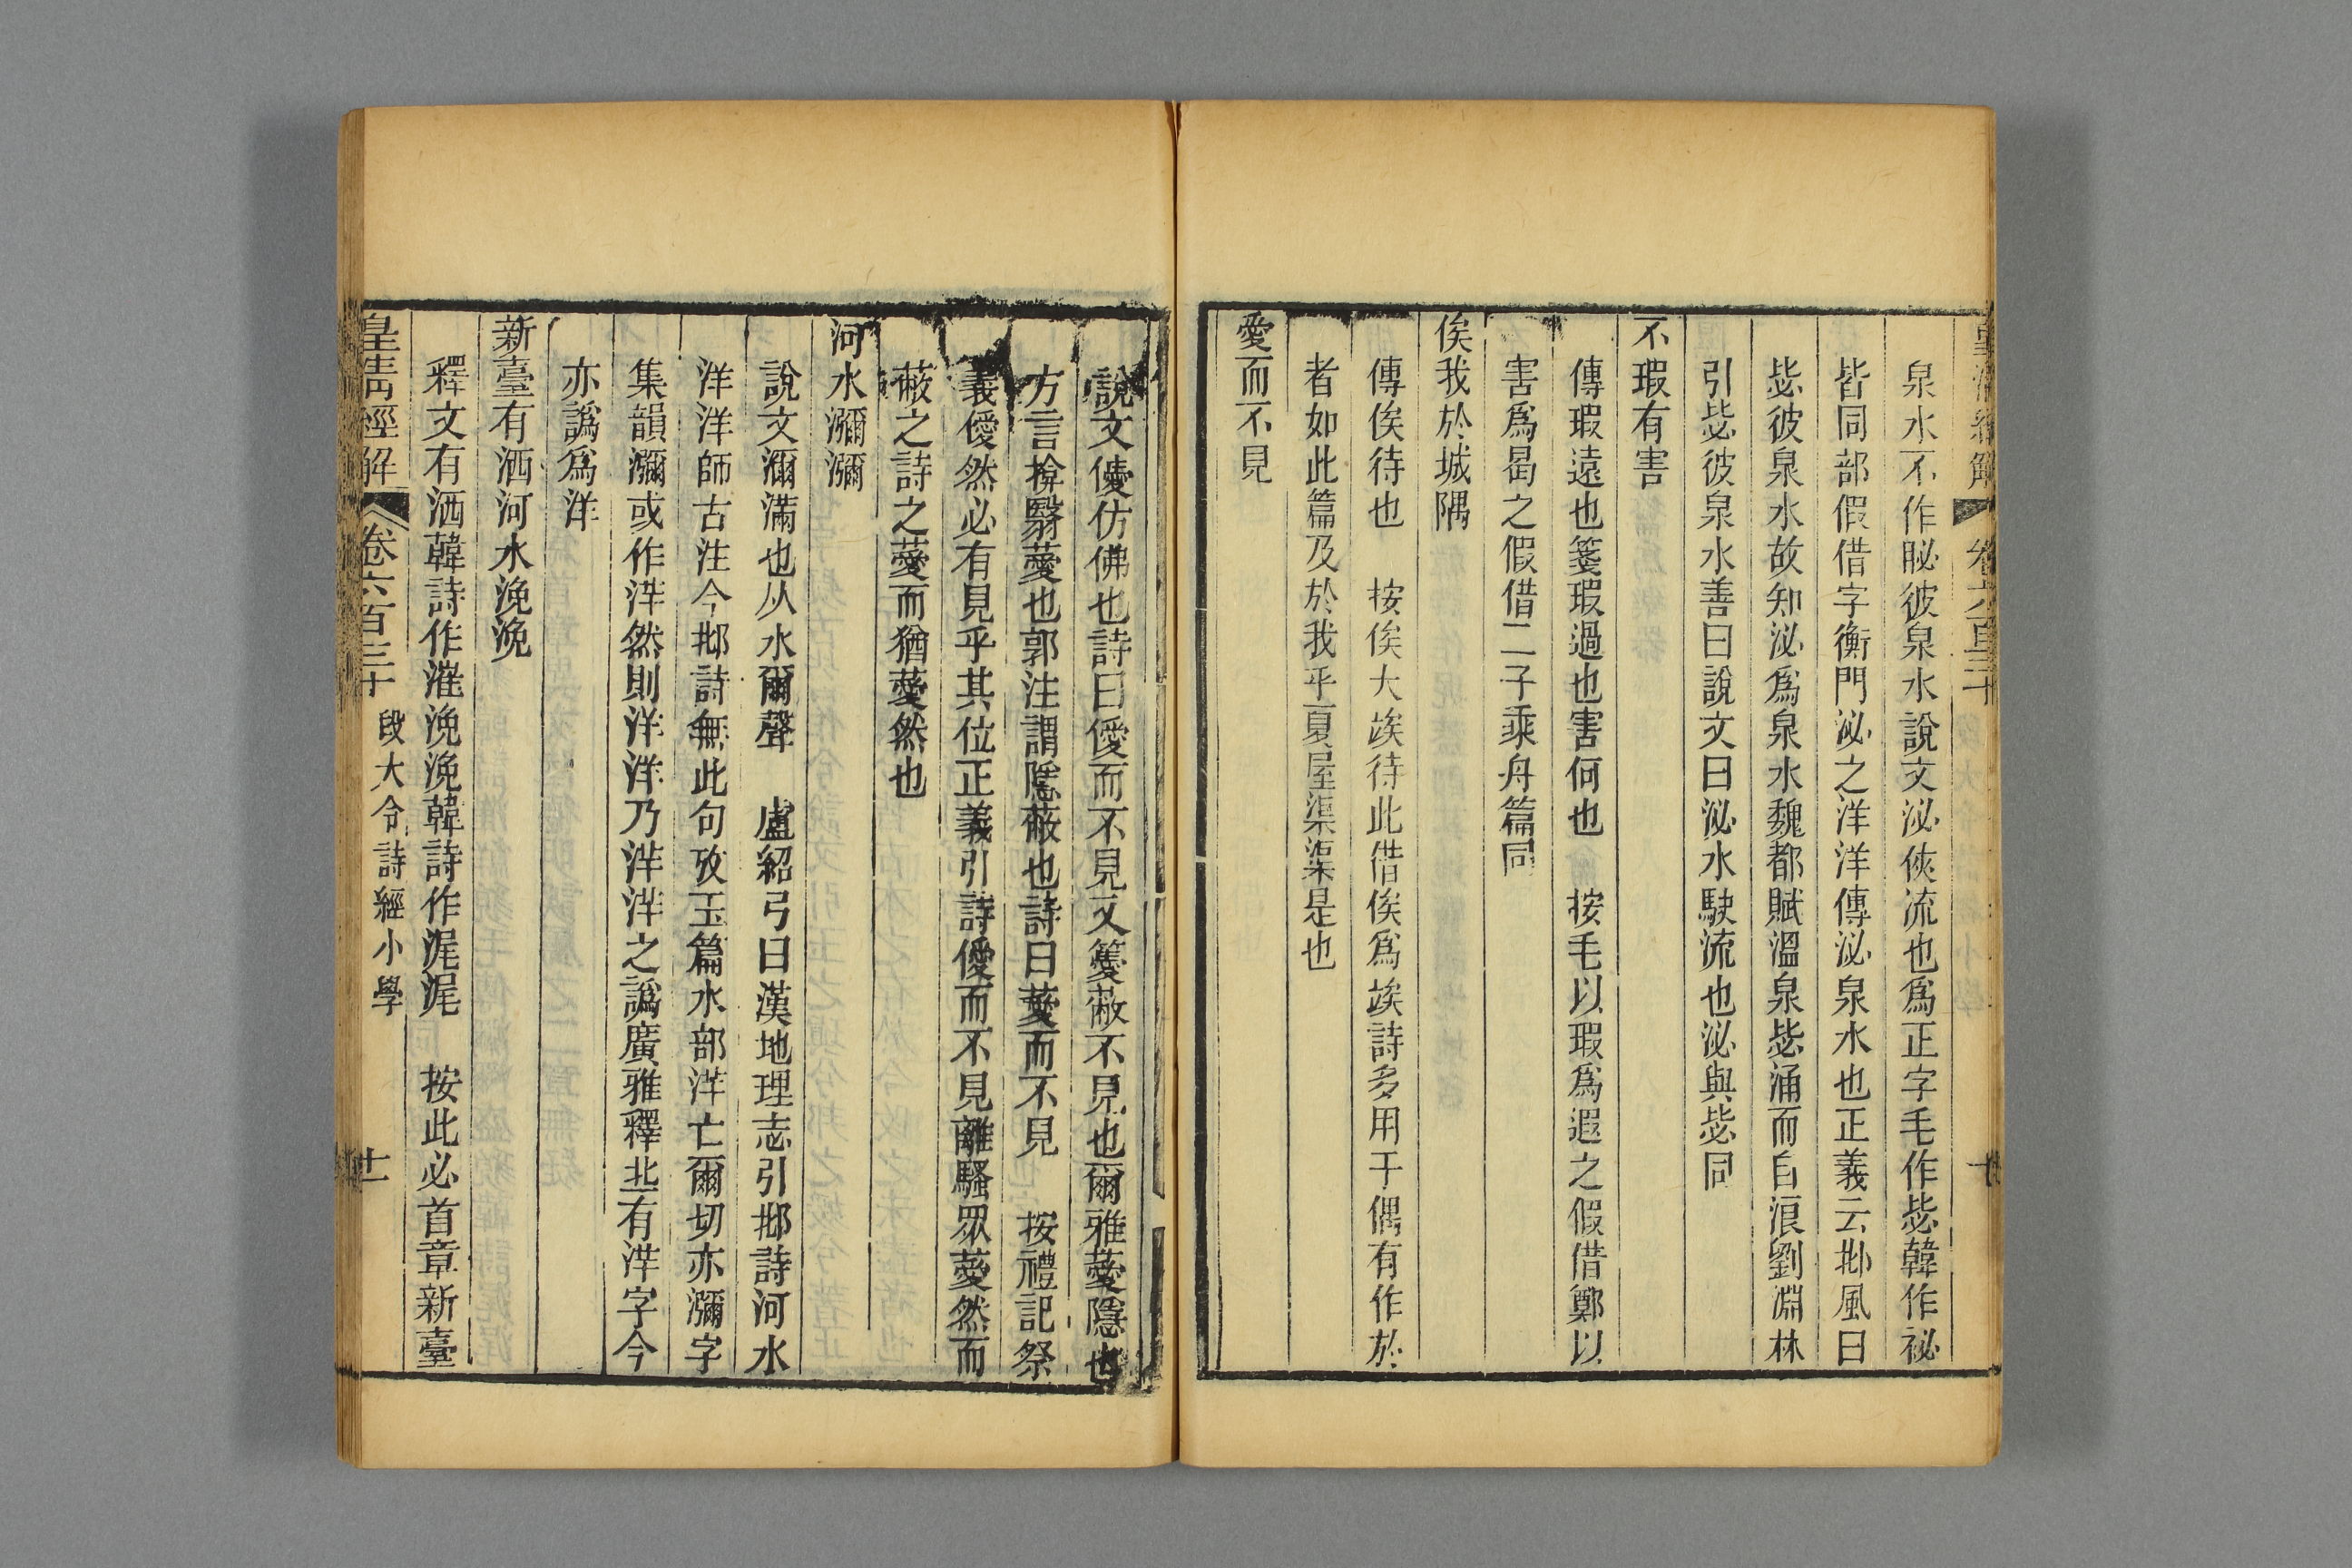 皇清經解 卷六百三十
泉水不作毖彼泉水說文泌俠流也爲正字毛作毖韓作祕
皆同部假借字衡門泌之洋洋傳泌泉水也正義云邶風曰
毖彼泉水故知泌爲泉水魏都賦溫泉毖涌而自浪劉淵林
引毖彼泉水善曰說文曰泌水駛流也泌與毖同
不瑕有害
傳瑕遠也箋瑕過也害何也 按毛以瑕爲遐之假借鄭以
害爲曷之假借二子乘舟篇同
俟我於城隅
傳俟待也 按俟大竢待此借俟爲竢詩多用于偶有作於
者如此篇及於我乎夏屋渠渠是也
愛而不見
說文僾仿佛也詩曰僾而不見又籆蔽不見也爾雅薆隱也
方言揜翳薆也郭注謂隱蔽也詩曰薆而不見 按禮記祭
義僾然必有見乎其位正義引詩僾而不見離騷眾薆然而
蔽之詩之薆而猶薆然也
河水瀰瀰
說文濔滿也从水爾聲 盧紹弓曰漢地理志引邶詩河水
洋洋師古注今邶詩無此句攷玉篇水部洋亡爾切亦瀰字
集韻瀰或作泮然則洋洋乃泮泮之譌廣雅釋北有泮字今
亦譌爲洋
新臺有洒河水浼浼
釋文有洒韓詩作漼浼浼韓詩作浘浘 按此必首章新臺
皇清經解 卷六百三十 段大令詩經小學 十一